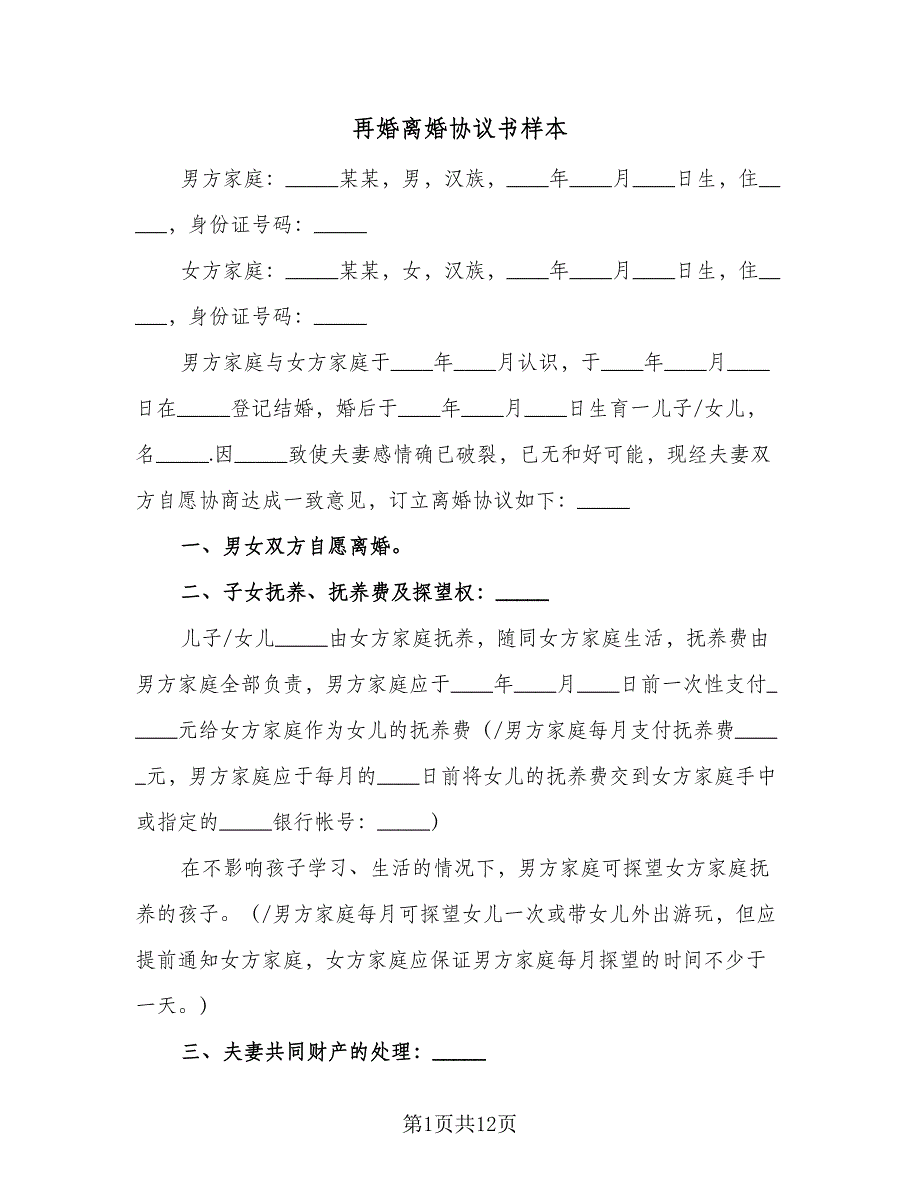 再婚离婚协议书样本
男方家庭：_____某某，男，汉族，____年____月____日生，住__
___，身份证号码：_____
女方家庭：_____某某，女，汉族，____年____月____日生，住__
___，身份证号码：_____
男方家庭与女方家庭于____年____月认识，于____年____月____
日在_____登记结婚，婚后于____年____月____日生育一儿子/女儿，
名_____.因_____致使夫妻感情确已破裂，已无和好可能，现经夫妻双
方自愿协商达成一致意见，订立离婚协议如下：_____
一、男女双方自愿离婚。
二、子女抚养、抚养费及探望权：_____
儿子/女儿_____由女方家庭抚养，随同女方家庭生活，抚养费由
男方家庭全部负责，男方家庭应于____年____月____日前一次性支付_
____元给女方家庭作为女儿的抚养费（/男方家庭每月支付抚养费____
_元，男方家庭应于每月的____日前将女儿的抚养费交到女方家庭手中
或指定的_____银行帐号：_____）
在不影响孩子学习、生活的情况下，男方家庭可探望女方家庭抚
养的孩子。（/男方家庭每月可探望女儿一次或带女儿外出游玩，但应
提前通知女方家庭，女方家庭应保证男方家庭每月探望的时间不少于
一天。）
三、夫妻共同财产的处理：_____
第1页共12页